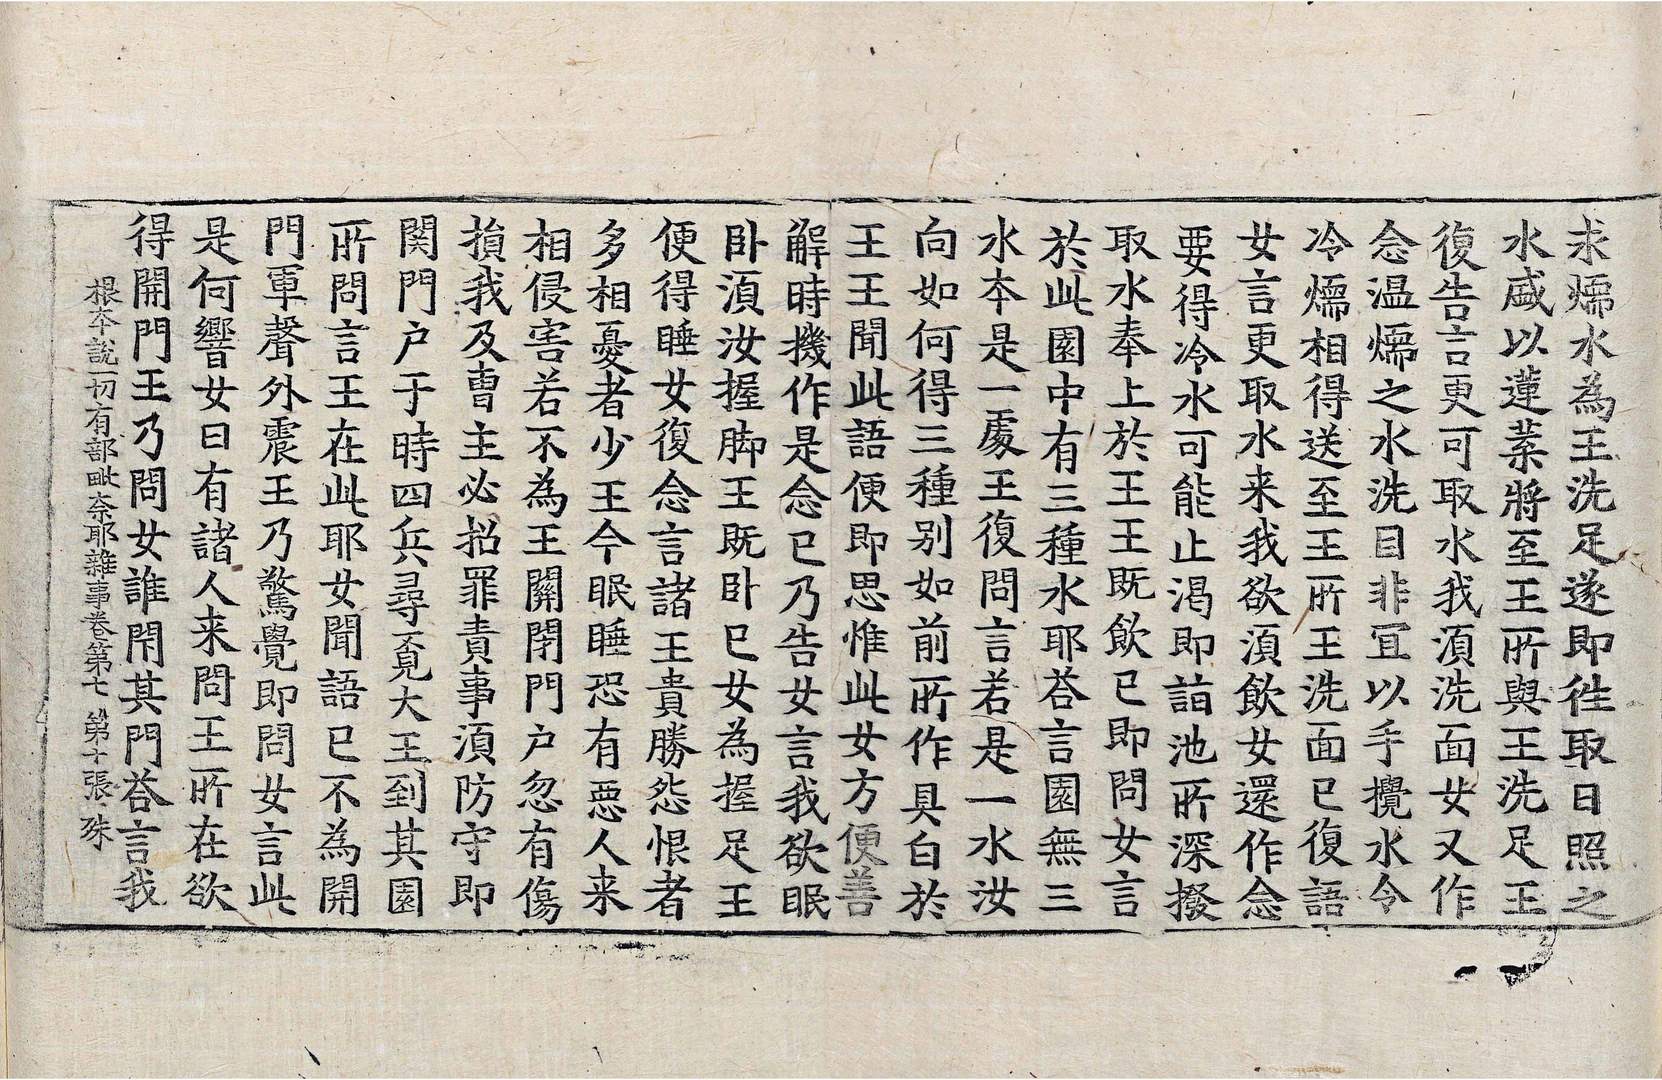 求煗水為王洗足遂即徃取日照之
水盛以蓮葉將至王所與王洗足王
復告言更可取水我湏洗面女又作
念温煗之水洗目非冝以手攪水令
冷煗相得送至王所王洗面已復語
女言更取水来我欲湏飲女還作念
要得冷水可能止渴即詣池所深撥
取水奉上於王王既飲已即問女言
於此園中有三種水耶荅言園無三
水夲是一處王復問言若是一水汝
向如何得三種别如前所作具白於
王王聞此語便即思惟此女方便善
解時機作是念已乃告女言我欲眠
卧湏汝握脚王既卧已女為握足王
便得睡女復念言諸王貴勝怨恨者
多相憂者少王今眠睡恐有惡人来
相侵害若不為王關閉門户忽有傷
損我及曹主必招罪責事湏防守即
関門户于時四兵尋覔大王到其園
所問言王在此耶女聞語已不為開
門軍聲外震王乃驚覺即問女言此
是何響女曰有諸人来問王所在欲
得開門王乃問女誰閇其門荅言我
根夲說一切有部毗奈耶雜事卷第七 第十張 殊